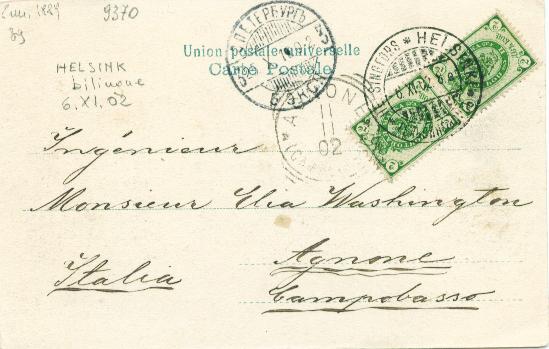 9370
HELSINK
bilingue
6.XI.02
Union postale universelle
Carte Postale
С.ПЕТЕРБУРГЪ
HELSINGFORS * HELSINKI
6 XI.02
AGNONE
11
02
2
2
2
Ingénieur
Monsieur Elia Washington
Agnone
Italia
Campobasso